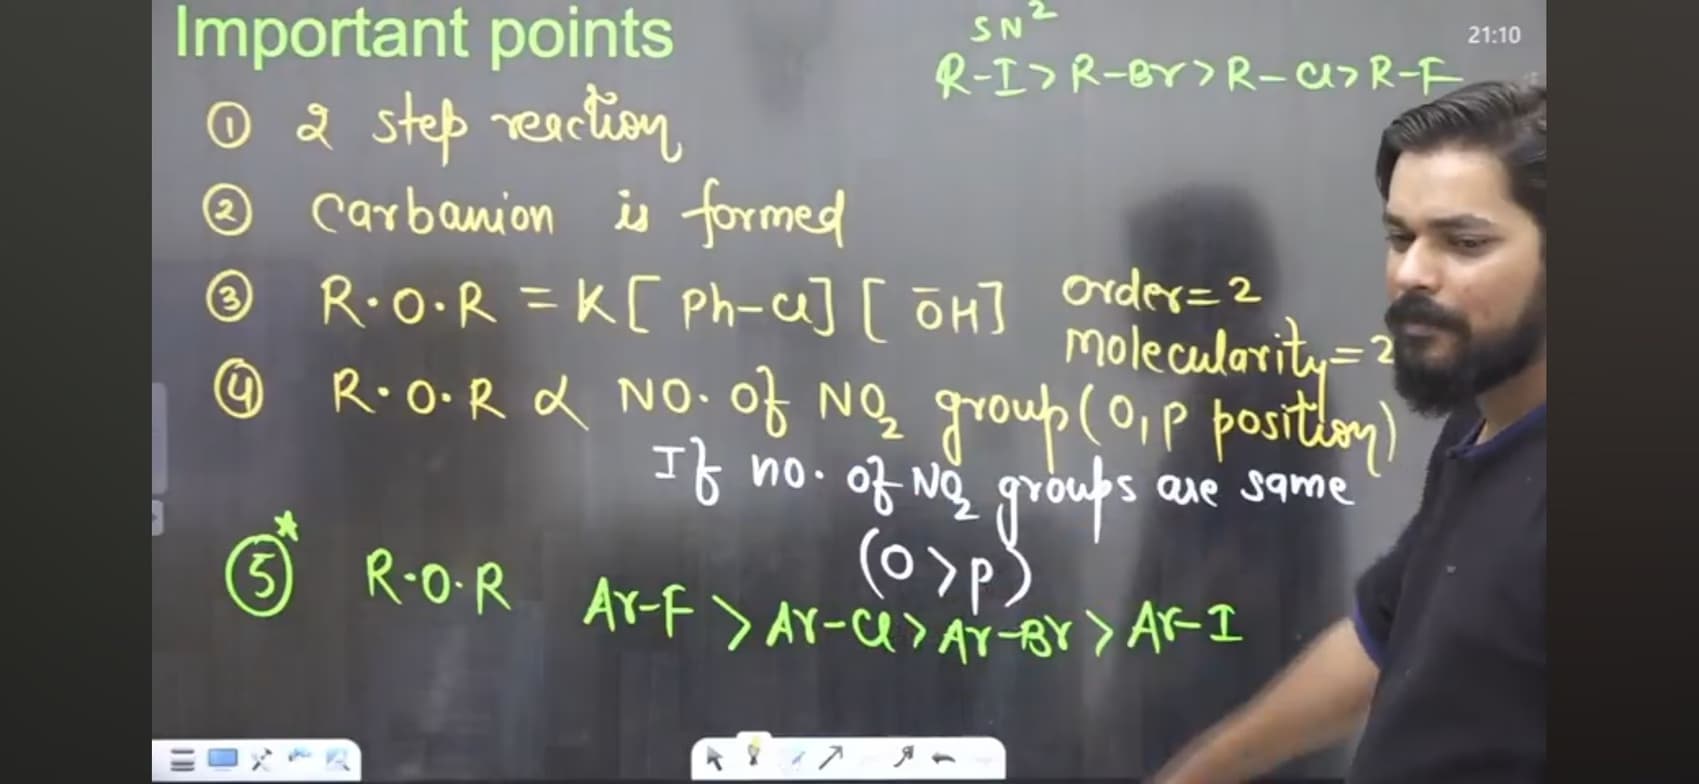 Important points
SN²
21:10
R-I > R-Br > R-Cl > R-F
① 2 step reaction
② Carbanion is formed
③ R.O.R = K[ Ph-Cl] [ ŌH] order=2
molecularity=2
④ R.O.R α NO. of NO₂ group (O,P position)
If no. of NO₂ groups are same
(O>p)
⑤* R.O.R Ar-F > Ar-Cl > Ar-Br > Ar-I